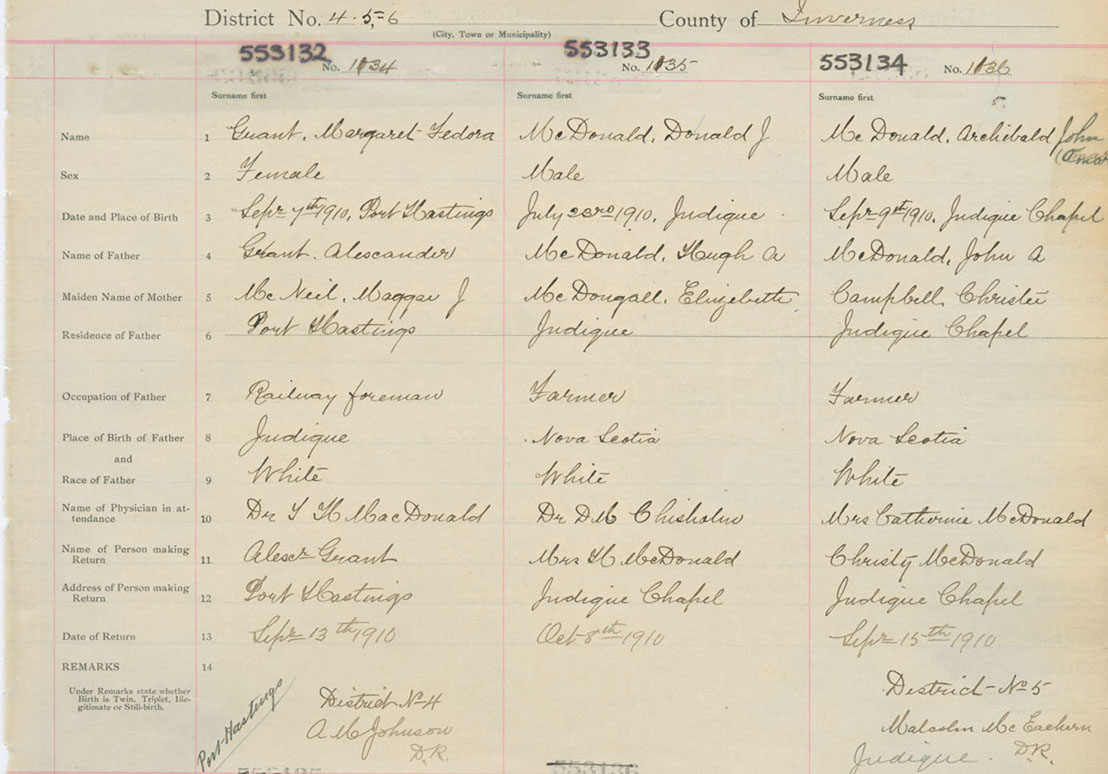 District No. 4-5-6 County of Inverness
(City, Town or Municipality)
553132 No. 1034 553133 No. 1035 553134 No. 1036
Surname first Surname first Surname first
Name 1 Grant, Margaret Fedora McDonald, Donald J McDonald, Archibald John
Sex 2 Female Male Male
Date and Place of Birth 3 Sepr 7th 1910, Port Hastings July 23rd 1910, Judique Sepr 9th 1910, Judique Chapel
Name of Father 4 Grant. Alexander McDonald, Hugh A McDonald, John A
Maiden Name of Mother 5 McNeil, Maggie J McDougall, Elizebeth Campbell, Christie
Residence of Father 6 Port Hastings Judique Judique Chapel
Occupation of Father 7 Railway foreman Farmer Farmer
Place of Birth of Father 8 Judique Nova Scotia Nova Scotia
and
Race of Father 9 White White White
Name of Physician in at-
tendance 10 Dr MacDonald Dr D M Chisholm Mrs Catherine McDonald
Name of Person making
Return 11 Alexr Grant Mrs H McDonald Christy McDonald
Address of Person making
Return 12 Port Hastings Judique Chapel Judique Chapel
Date of Return 13 Sepr 13th 1910 Oct 8th 1910 Sepr 15th 1910
REMARKS 14
Under Remarks state whether
Birth is Twin, Triplet, Ille-
gitimate or Still-birth.
Port Hastings
District No 4
A M Johnson
D.R.
District No 5
Malcolm McEachern
Judique D.R.
553136